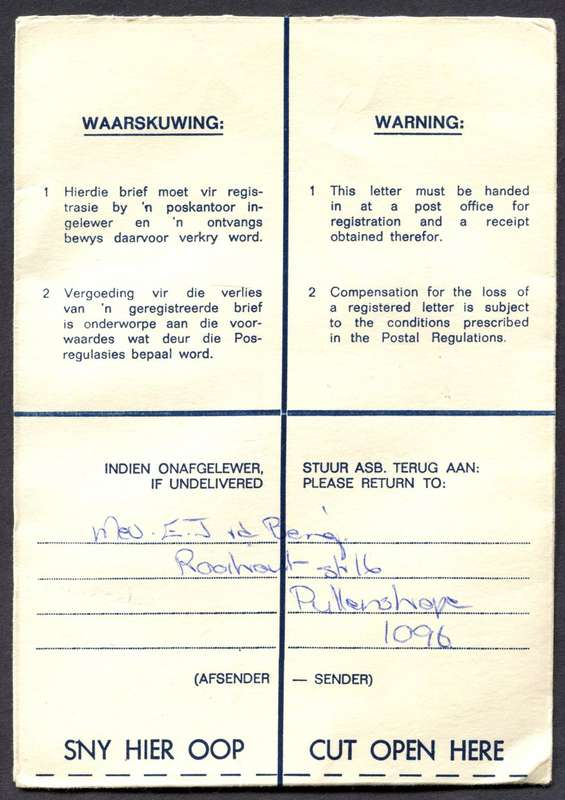 WAARSKUWING:
1 Hierdie brief moet vir regis-
trasie by 'n poskantoor in-
gelewer en 'n ontvangs
bewys daarvoor verkry word.
2 Vergoeding vir die verlies
van 'n geregistreerde brief
is onderworpe aan die voor-
waardes wat deur die Pos-
regulasies bepaal word.
WARNING:
1 This letter must be handed
in at a post office for
registration and a receipt
obtained therefor.
2 Compensation for the loss of
a registered letter is subject
to the conditions prescribed
in the Postal Regulations.
INDIEN ONAFGELEWER, STUUR ASB. TERUG AAN:
IF UNDELIVERED PLEASE RETURN TO:
Mev. E.J vd Berg.
Rooihout-str 16
Pullenshope
1096
(AFSENDER — SENDER)
SNY HIER OOP CUT OPEN HERE